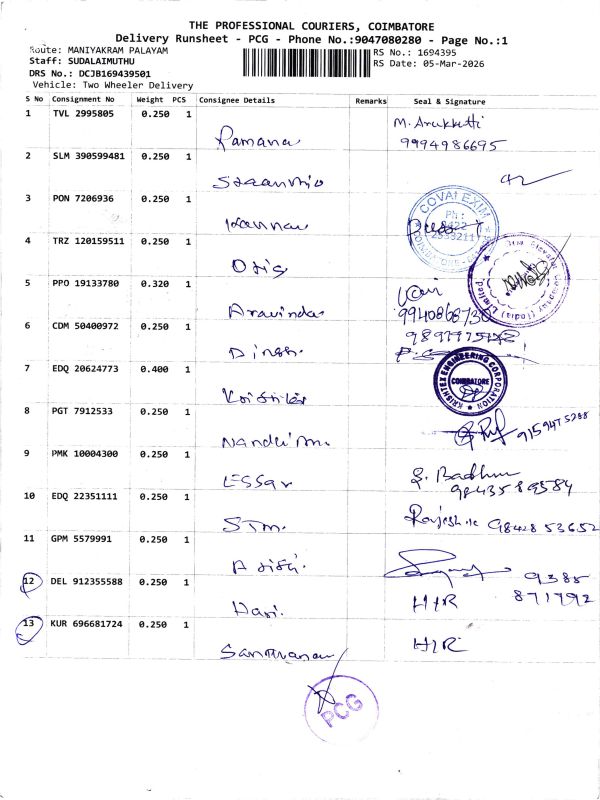 THE PROFESSIONAL COURIERS, COIMBATORE
Delivery Runsheet - PCG - Phone No.:9047080280 - Page No.:1
Route: MANIYAKRAM PALAYAM
RS No.: 1694395
Staff: SUDALAIMUTHU
RS Date: 05-Mar-2026
DRS No.: DCJB169439501
Vehicle: Two Wheeler Delivery
S No Consignment No Weight PCS Consignee Details Remarks Seal & Signature
1 TVL 2995805 0.250 1
Ramana
9994986695
2 SLM 390599481 0.250 1
3 PON 7206936 0.250 1
Kannan
COVAI EXIM
4 TRZ 120159511 0.250 1
Otis
5 PPO 19133780 0.320 1
Aravinda
6 CDM 50400972 0.250 1
7 EDQ 20624773 0.400 1
KRISHTEX ENGINEERING CORPORATION
COIMBATORE
8 PGT 7912533 0.250 1
9 PMK 10004300 0.250 1
LESSar
9843589584
10 EDQ 22351111 0.250 1
STM.
9842853652
11 GPM 5579991 0.250 1
9385
871792
12 DEL 912355588 0.250 1
Hari.
H/R
13 KUR 696681724 0.250 1
Saravanan
H/R
PCG